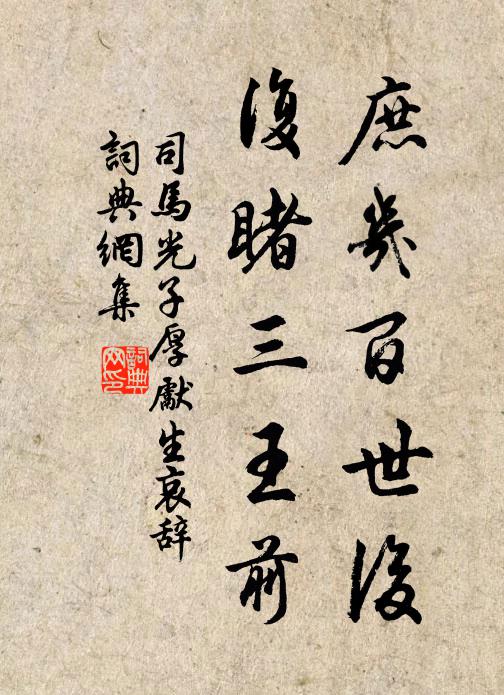 庶幾百世後
復睹三王前
司馬光子厚獻生哀辞
詞典網集
詞典網印